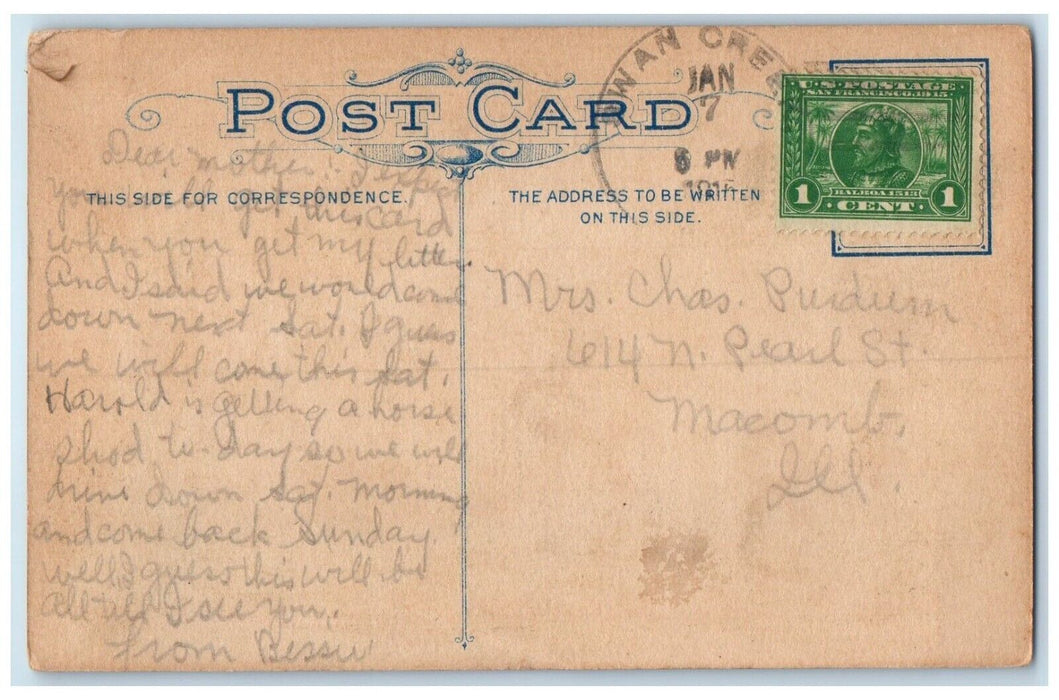 POST CARD
THIS SIDE FOR CORRESPONDENCE.
THE ADDRESS TO BE WRITTEN
ON THIS SIDE.
JAN
7
6 PM
U.S. POSTAGE
SAN FRANCISCO 1915
BALBOA 1513
1 CENT 1
Dear mother: I expect
you will get this card
when you get my letter.
And I said we would come
down next Sat. I guess
we will come this Sat.
Harold is getting a horse
shod to-day so we will
drive down Sat. Morning
and come back Sunday.
well I guess this will be
All till I see you.
From Bessie
Mrs. Chas. Purdum
614 N. Pearl St.
Macomb,
Ill.